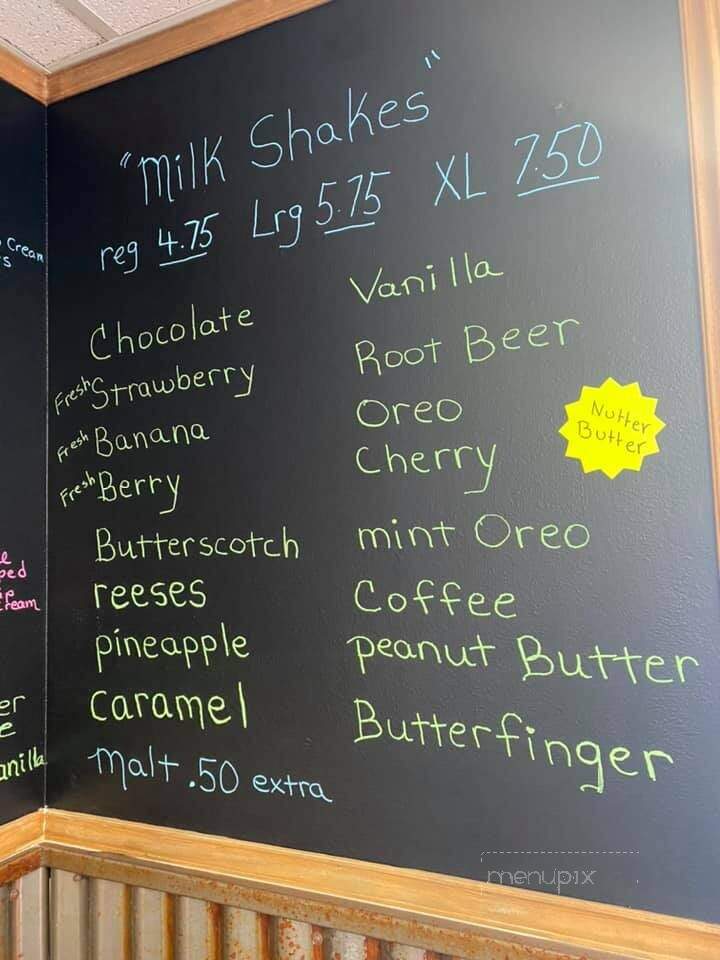 "Milk Shakes"
reg 4.75 Lrg 5.75 XL 7.50
Chocolate
Fresh Strawberry
Fresh Banana
Fresh Berry
Butterscotch
reeses
pineapple
caramel
malt .50 extra
Vanilla
Root Beer
Oreo
Cherry
mint Oreo
Coffee
peanut Butter
Butterfinger
Nutter
Butter
Cream
anilla
menupix